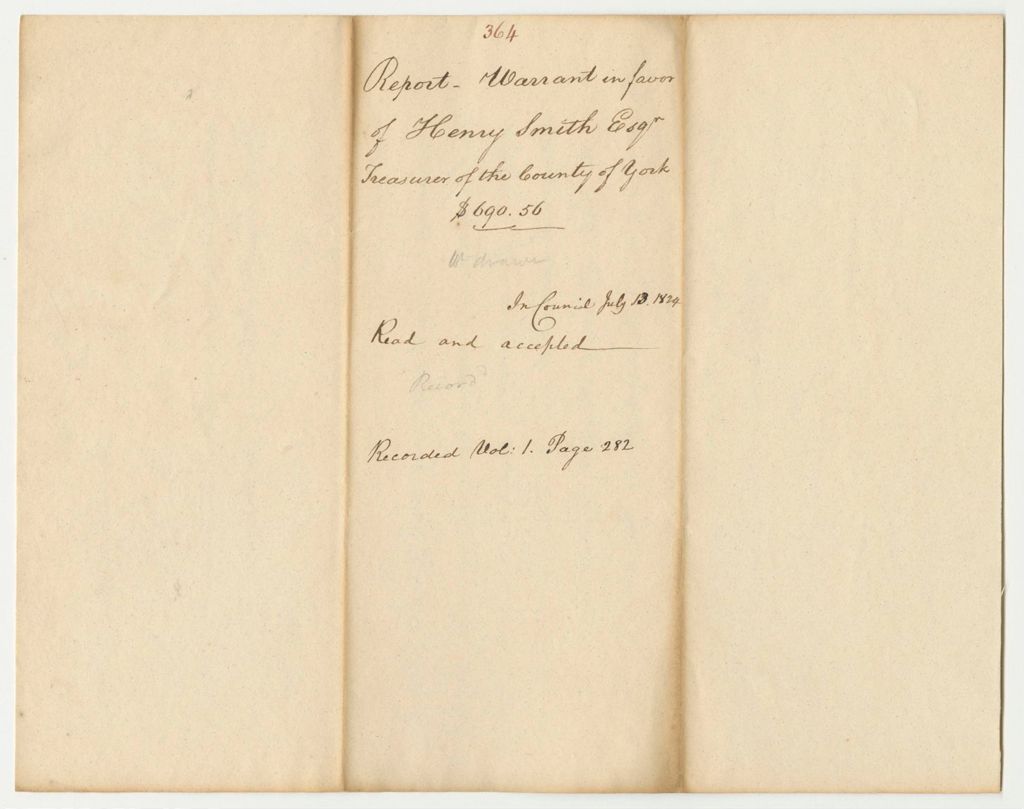 364
Report - Warrant in favor
of Henry Smith Esqr
Treasurer of the County of York
$690.56
drawn
In Council July 13. 1824
Read and accepted
Record'd
Recorded Vol: 1. Page 282